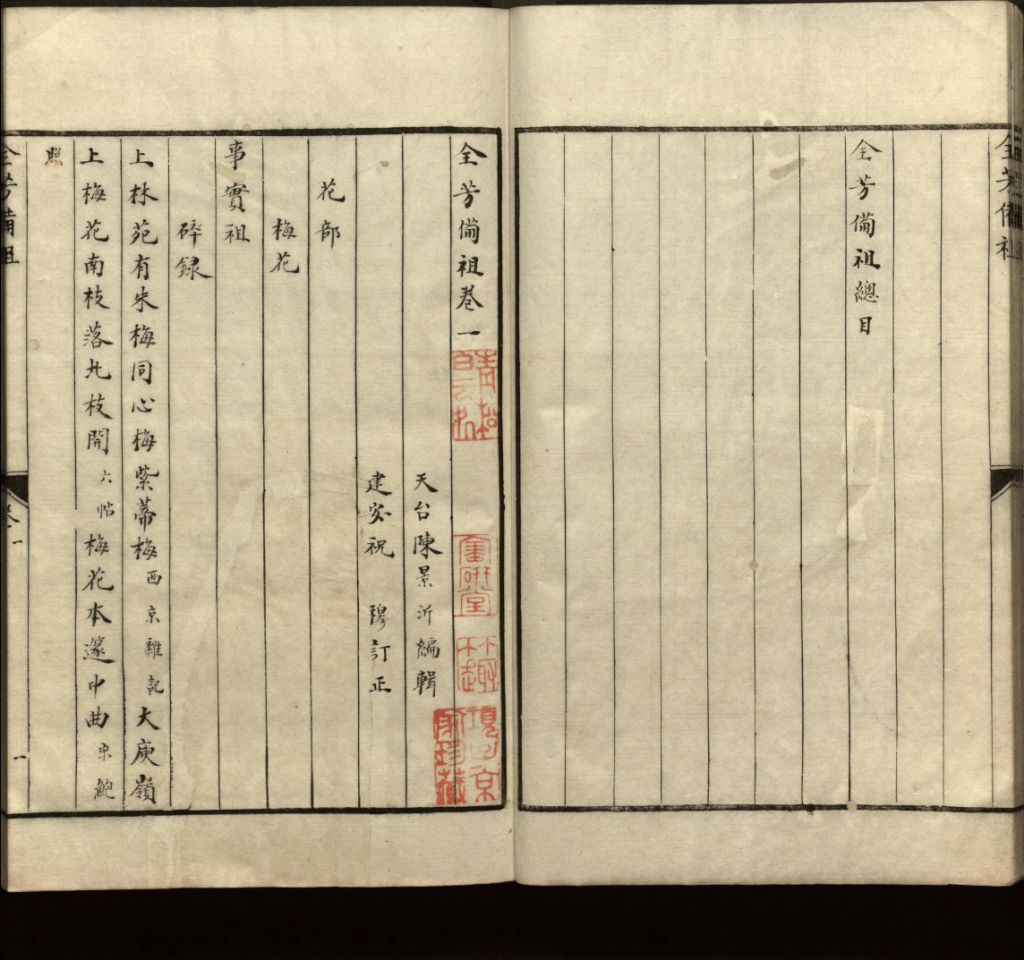 全芳備祖
全芳備祖總目
全芳備祖卷一
天台陳景沂編輯
建安祝 穆訂正
花部
梅花
事實祖
碎録
上林苑有朱梅同心梅紫蒂梅西京雜記大庾嶺
上梅花南枝落北枝開六帖梅花本邃中曲宋鮑
照
全芳備祖
卷一
一